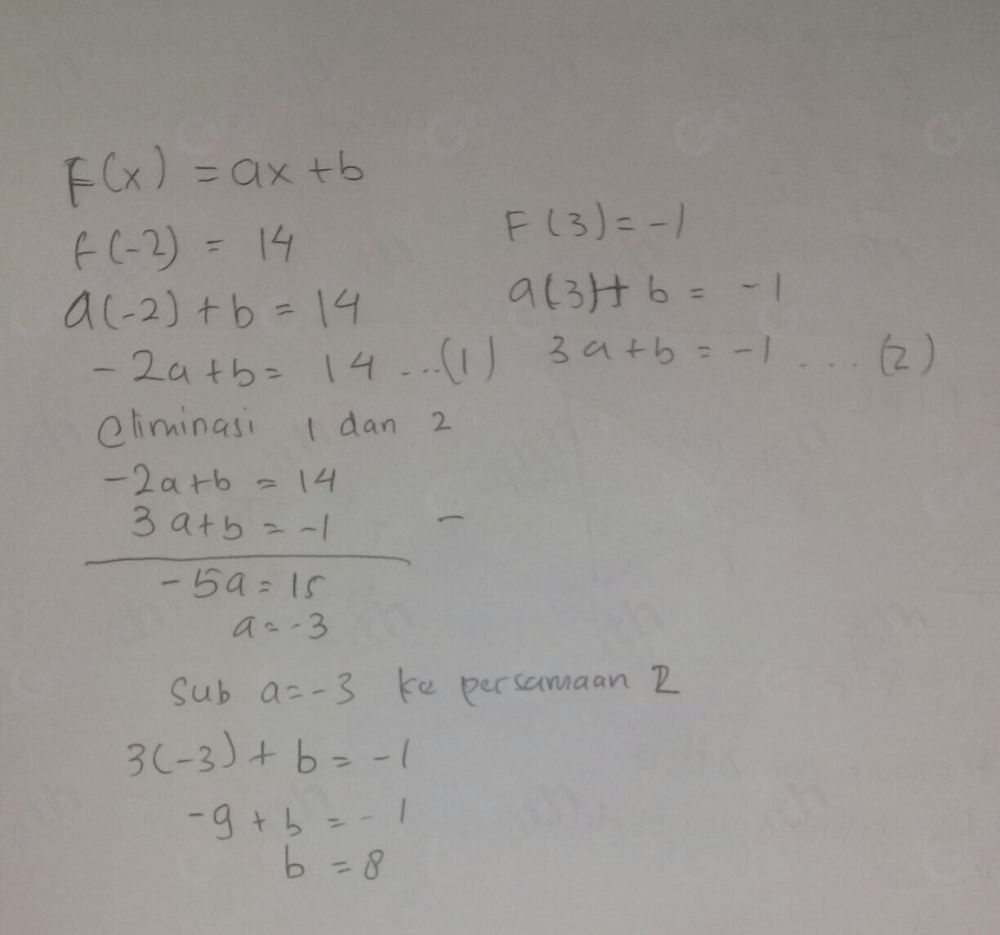 F(x) = ax + b
f(-2) = 14
F(3) = -1
a(-2) + b = 14
a(3) + b = -1
-2a + b = 14 ...(1)
3a + b = -1 .... (2)
eliminasi 1 dan 2
-2a + b = 14
3a + b = -1 -
-5a = 15
a = -3
Sub a = -3 ke persamaan 2
3(-3) + b = -1
-9 + b = -1
b = 8